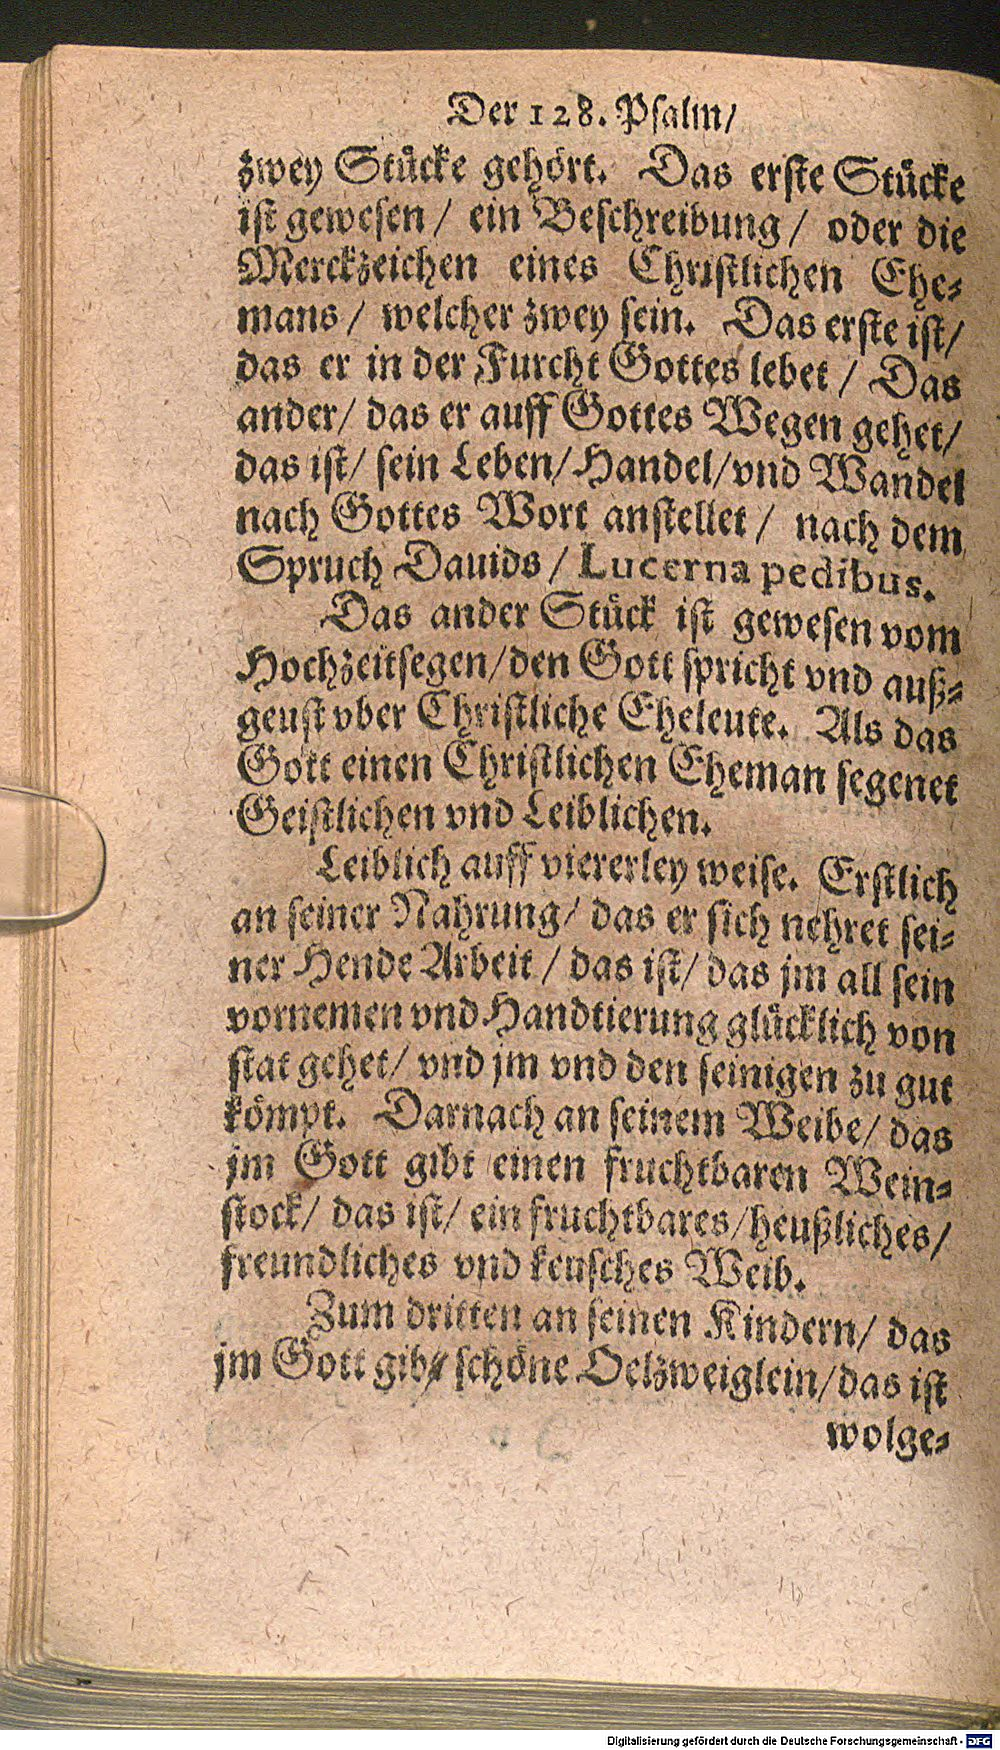 Der 128. Psalm/
zwey Stücke gehört. Das erste Stücke
ist gewesen / ein Beschreibung / oder die
Merckzeichen eines Christlichen Ehe-
mans / welcher zwey sein. Das erste ist/
das er in der Furcht Gottes lebet / Das
ander/ das er auff Gottes Wegen gehet/
das ist/ sein Leben/ Handel/ vnd Wandel
nach Gottes Wort anstellet / nach dem
Spruch Dauids / Lucerna pedibus.
Das ander Stück ist gewesen vom
Hochzeitsegen/ den Gott spricht vnd auß-
geust vber Christliche Eheleute. Als das
Gott einen Christlichen Eheman segenet
Geistlichen vnd Leiblichen.
Leiblich auff viererley weise. Erstlich
an seiner Nahrung/ das er sich nehret sei-
ner Hende Arbeit / das ist/ das jm all sein
vornemen vnd Handtierung glücklich von
stat gehet/ vnd jm vnd den seinigen zu gut
kömpt. Darnach an seinem Weibe/ das
jm Gott gibt einen fruchtbaren Wein-
stock/ das ist/ ein fruchtbares/ heußliches/
freundliches vnd keusches Weib.
Zum dritten an seinen Kindern/ das
jm Gott gibt schöne Oelzweiglein/ das ist
wolge-
Digitalisierung gefördert durch die Deutsche Forschungsgemeinschaft - DFG